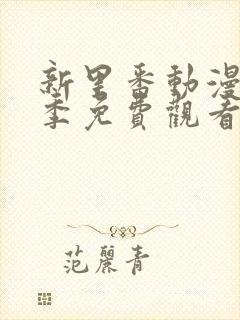 新里番動漫
季免費觀看
范麗青